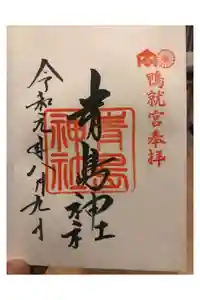 鴨就宮奉拝
青島神社
青島
神社
令和元年八月九日